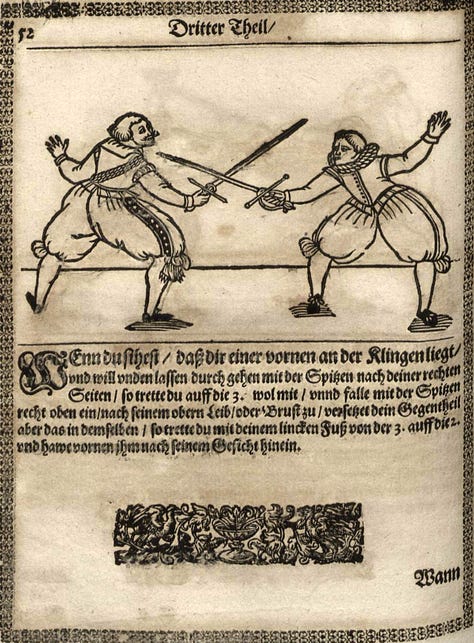 52
Dritter Theil/
WEnn du sihest / daß dir einer vornen an der Klingen liegt/
vnd will vnden lassen durch gehen mit der Spitzen nach deiner rechten
Seiten / so trette du auff die 3. wol mit / vnnd falle mit der Spitzen
recht oben ein/nach seinem obern Leib/oder Brust zu/ versetzt dein Gegentheil
aber das in demselben / so trette du mit deinem lincken Fuß von der 3. auff die 2.
vnd hawe vornen jhm nach seinem Gesicht hinein.
Wann